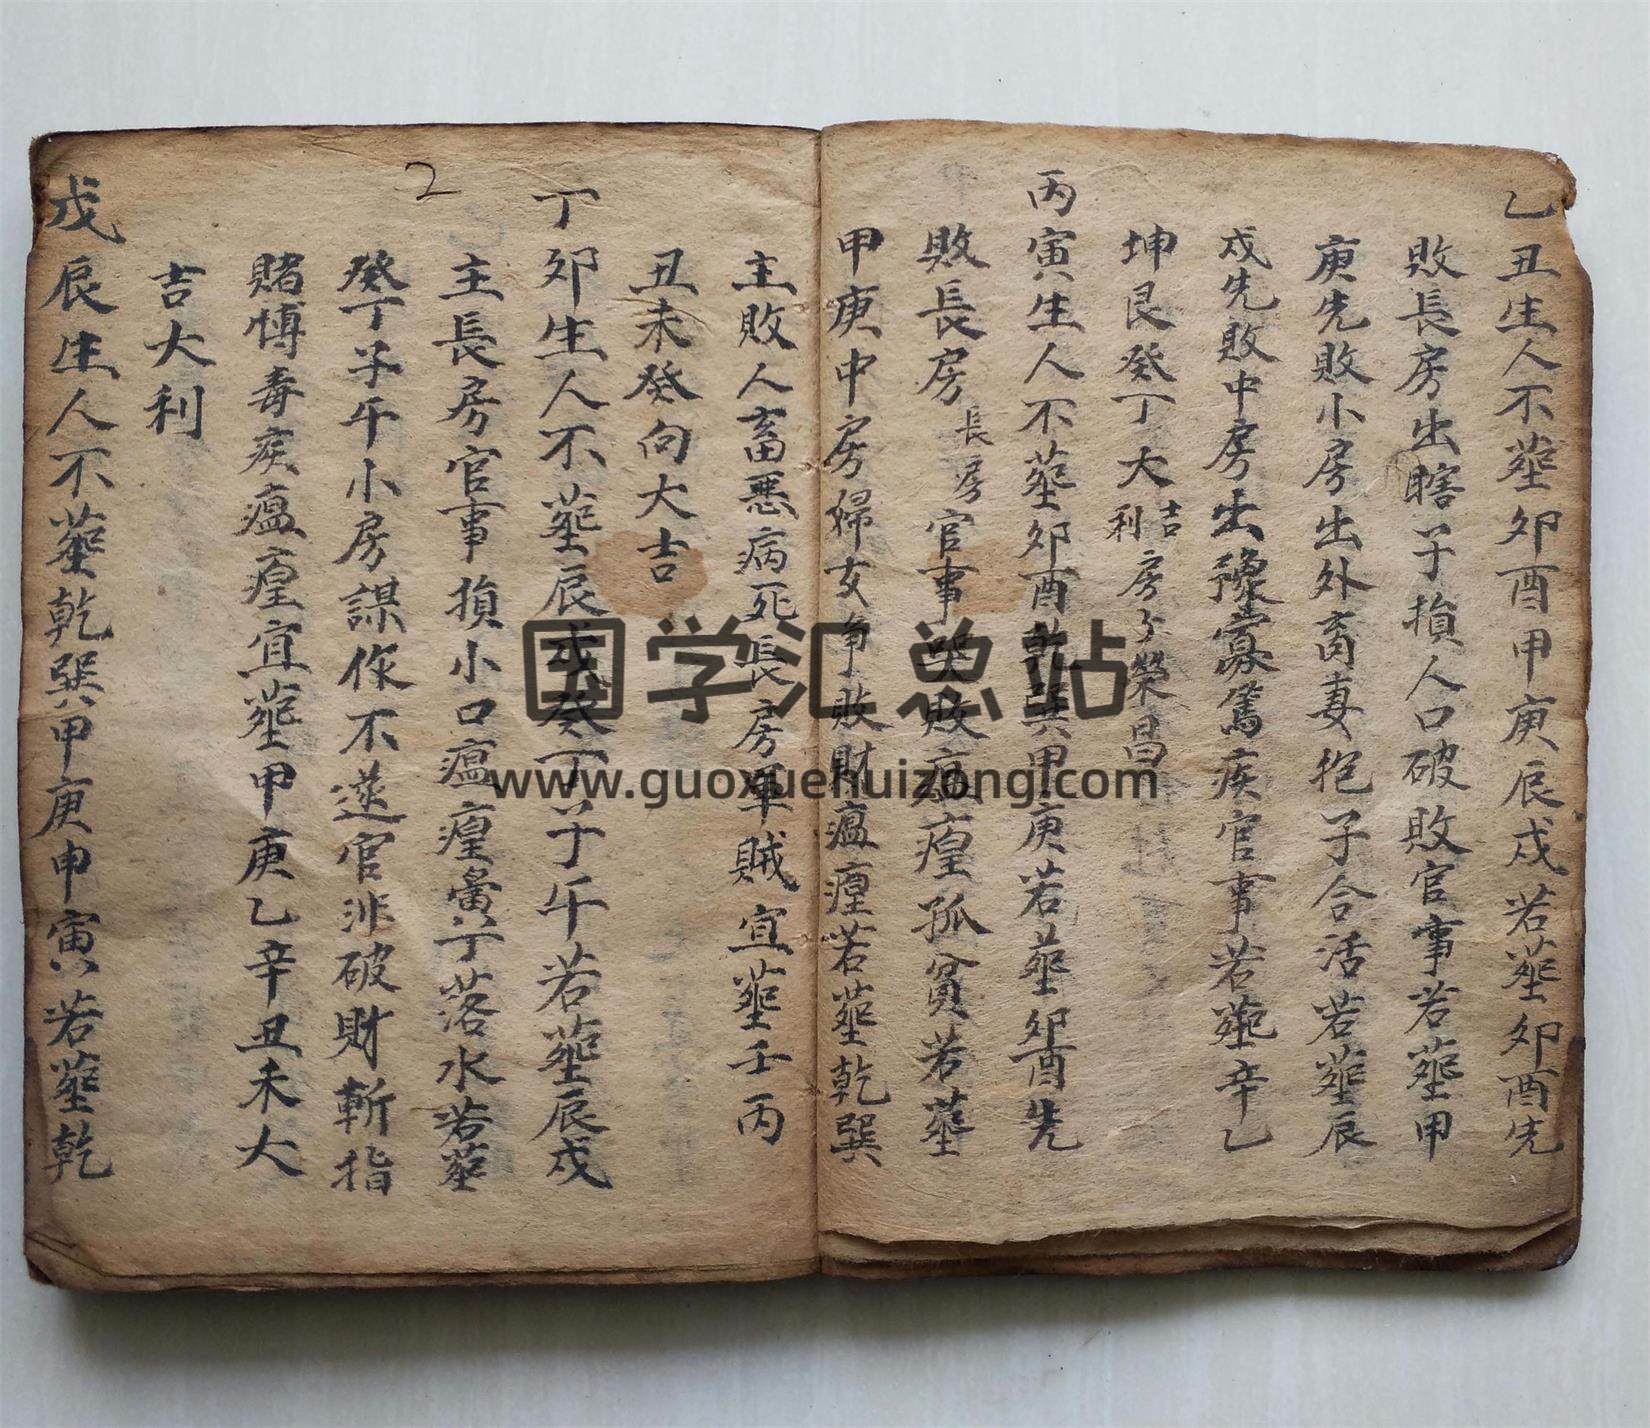 乙丑生人不葬卯酉甲庚辰戌若葬卯酉先
敗長房出瞎子損人口破敗官事若葬甲
庚先敗小房出外畜妻抱子合活若葬辰
戌先敗中房出寡篤疾官事若葬辛乙
坤艮癸丁大吉利房房榮昌
丙寅生人不葬卯酉乾巽甲庚若葬卯酉先
敗長房長房官事哭敗瘟㾮孤貧若葬
甲庚中房婦女争敗財瘟㾮若葬乾巽
主敗人畜惡病死長房軍賊宜葬壬丙
丑未癸向大吉
2
丁卯生人不葬辰戌癸丁子午若葬辰戌
主長房官事損小口瘟㾮落水若葬
癸丁子午小房謀作不遂官非破財斬指
賭博毒疾瘟㾮宜葬甲庚乙辛丑未大
吉大利
戊辰生人不葬乾巽甲庚申寅若葬乾
国学汇总站
www.guoxuehuizong.com